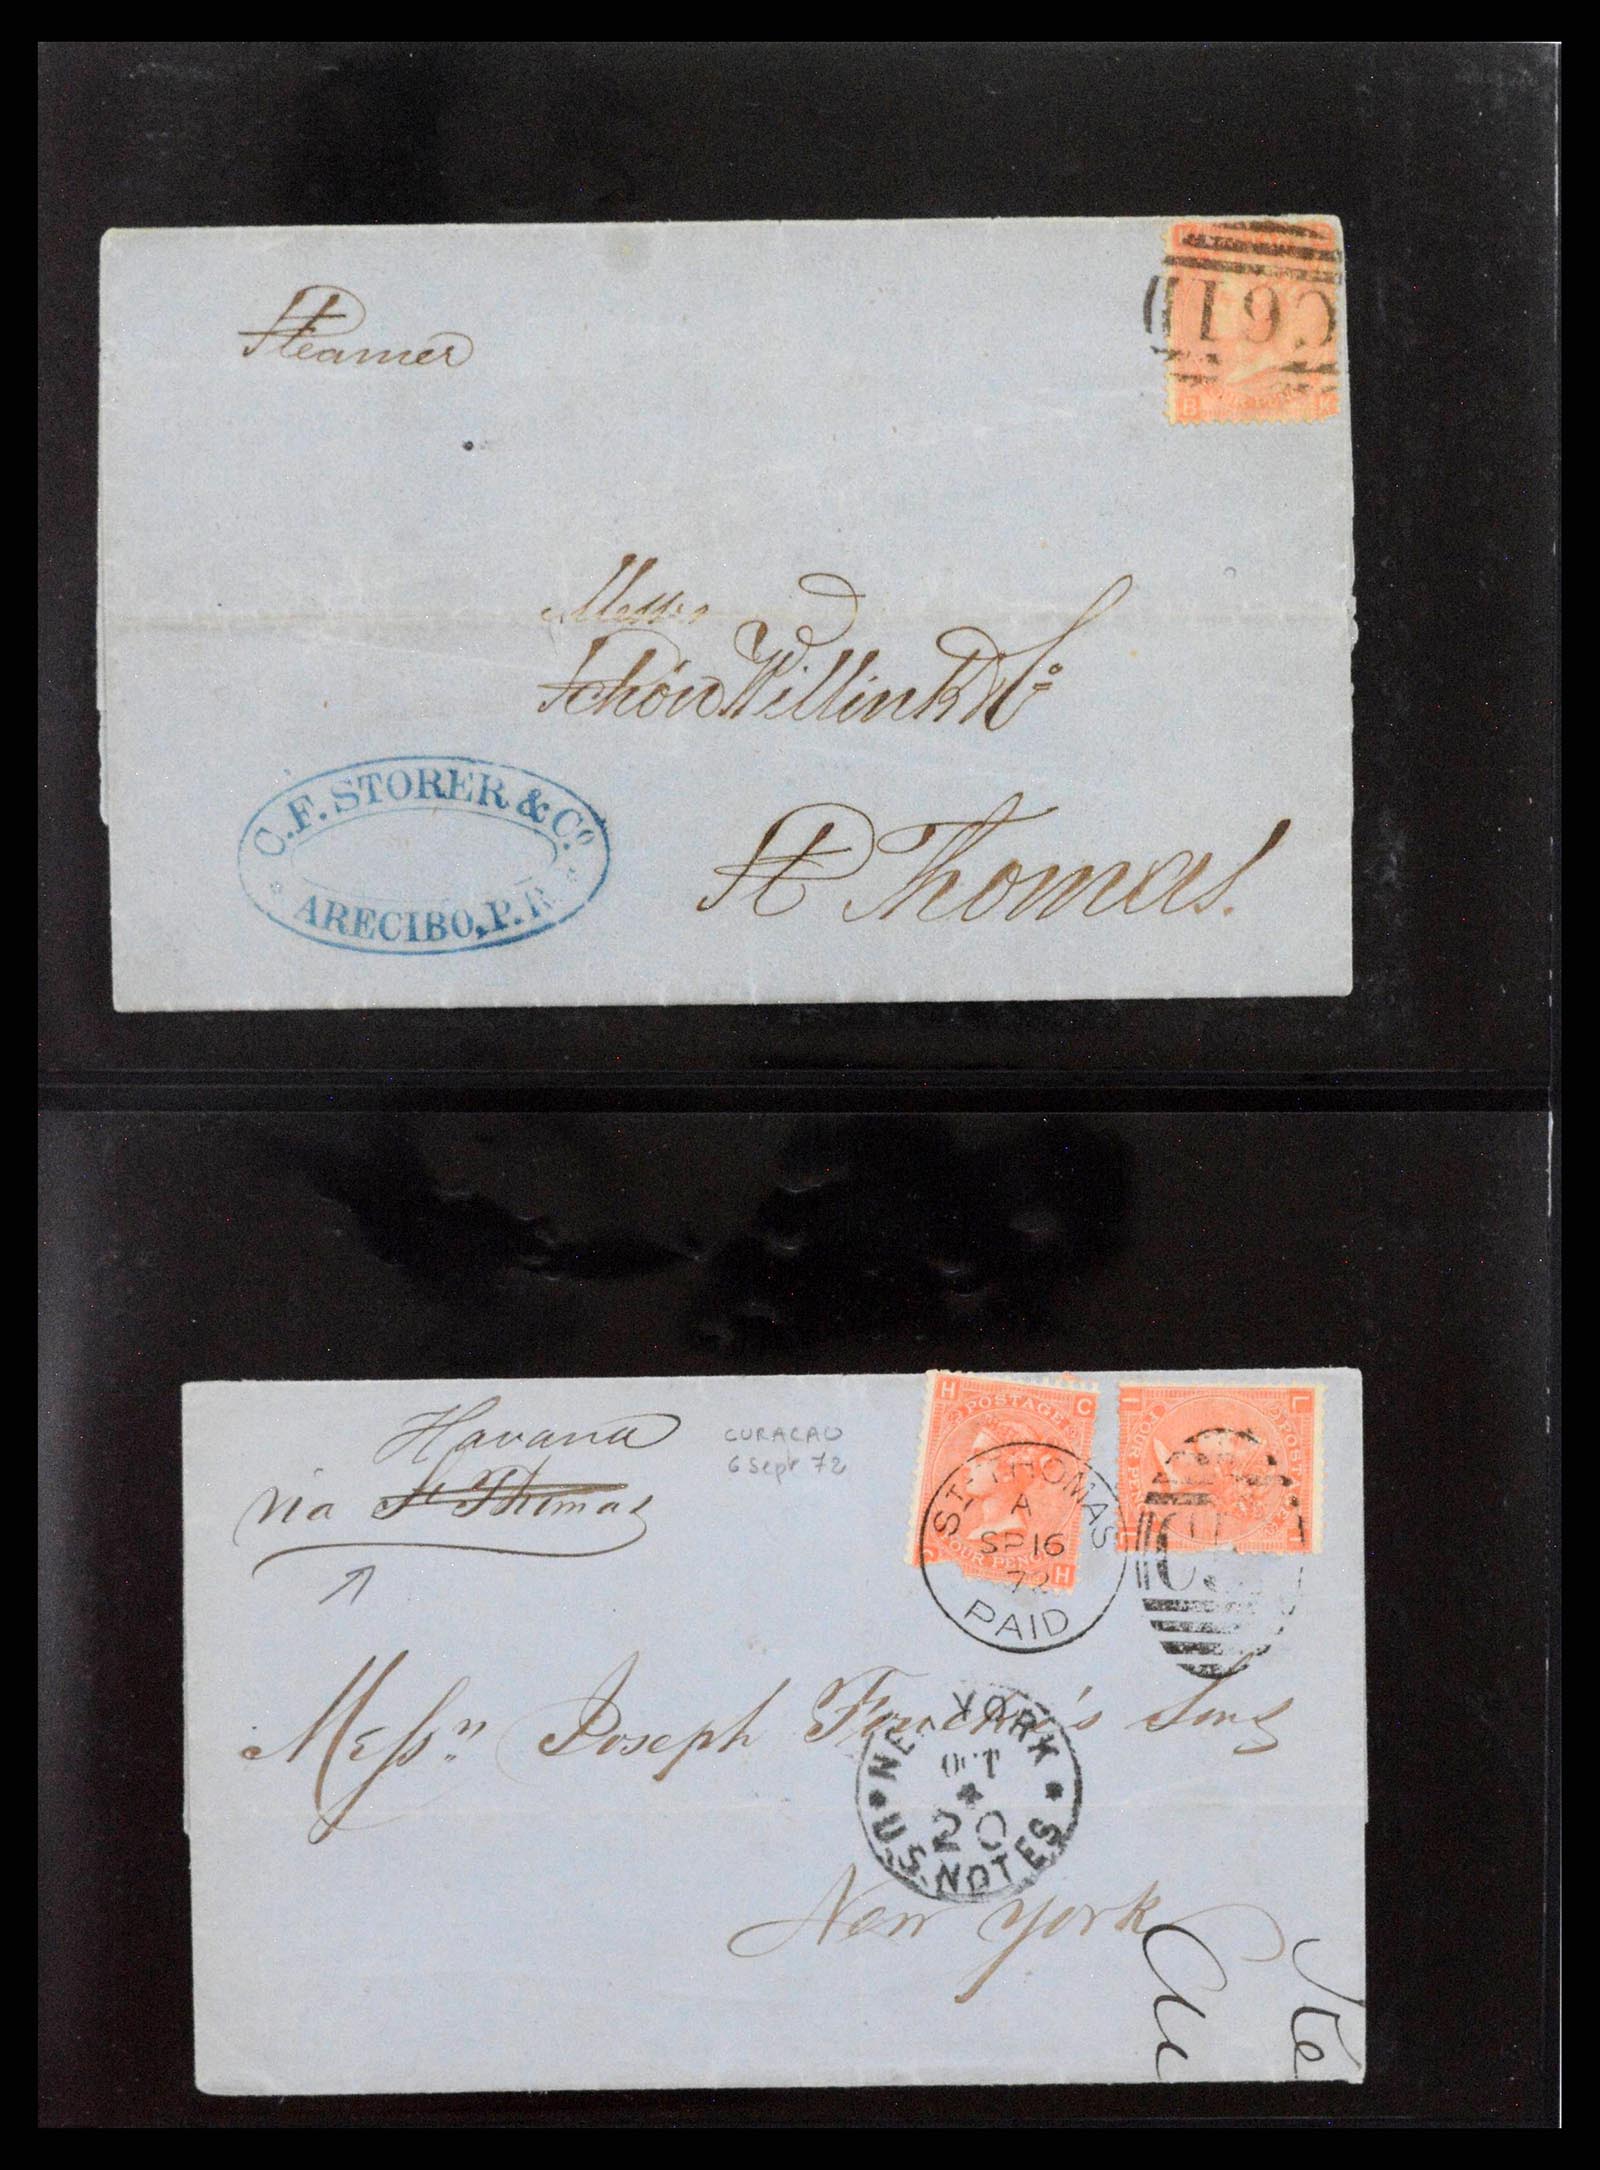 C61
B K
Steamer
Messrs
Schön Willink & Co
St Thomas.
C. F. STORER & Co.
ARECIBO, P. R.
Havana
via St Thomas
CURACAO
6 Sept 72
H C
POSTAGE
FOUR PENCE
C H
I L
POSTAGE
FOUR PE
ST THOMAS
A
SP 16
72
PAID
C51
Messrs Joseph Foulke's Sons
New York
NEW YORK
OCT
20
U.S. NOTES